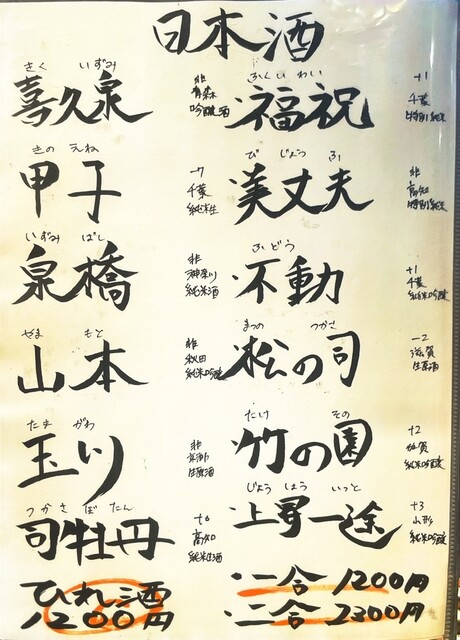 日本酒
きく いずみ
喜久泉
非
青森
吟醸酒
きの えね
甲子
-7
千葉
純米生
いずみ ばし
泉橋
非
神奈川
純米酒
やま もと
山本
非
秋田
純米吟醸
たま がわ
玉川
非
京都
生原酒
つかさ ぼたん
司牡丹
+6
高知
純米生酒
ひれ酒
1200円
ふくいわい
・福祝
+1
千葉
特別純米
び じょう ふ
・美丈夫
非
高知
特別純米
ふどう
・不動
+1
千葉
純米吟醸
まつの つかさ
・松の司
-2
滋賀
生原酒
たけ その
・竹の園
+2
佐賀
純米吟醸
じょう しょう いっと
・上昇一途
+3
山形
純米吟醸
・一合 1200円
・二合 2300円